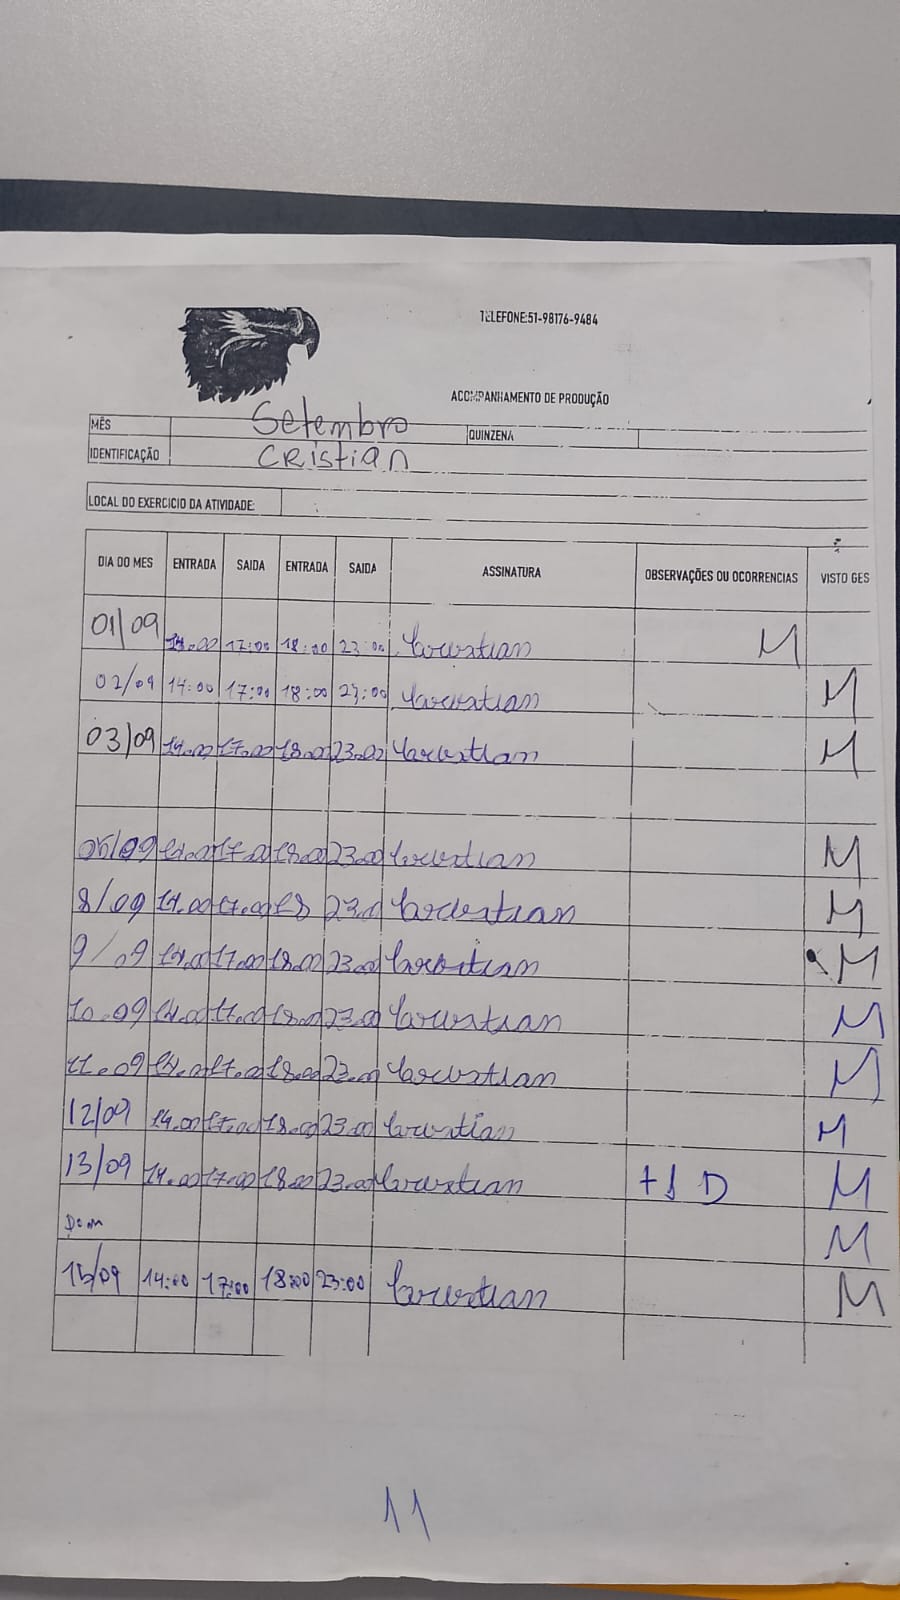 TELEFONE:51-98176-9484
ACOMPANHAMENTO DE PRODUÇÃO
MÊS Setembro QUINZENA
IDENTIFICAÇÃO CRistian
LOCAL DO EXERCICIO DA ATIVIDADE:
DIA DO MES ENTRADA SAIDA ENTRADA SAIDA ASSINATURA OBSERVAÇÕES OU OCORRENCIAS VISTO GES
01/09 14:00 17:00 18:00 23:00 M
02/09 14:00 17:00 18:00 23:00 M
03/09 14.00 17.00 18.00 23.00 M
14.00 17.00 18.00 23.00 M
8/09 14.00 17.00 18 23.00 M
9/09 14.00 17.00 18.00 23.00 M
10.09 14.00 17.00 18.00 23.00 M
11.09 14.00 17.00 18.00 23.00 M
12/09 14.00 17.00 18.00 23.00 M
13/09 14.00 17.00 18.00 23.00 +1 D M
Dom M
15/09 14:00 17:00 18:00 23:00 M
11